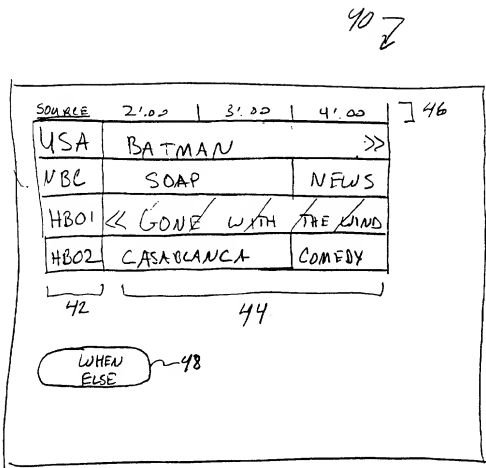 40
SOURCE 2:00 3:00 4:00 46
USA BATMAN >>
NBC SOAP NEWS
HBO1 << GONE WITH THE WIND
HBO2 CASABLANCA COMEDY
42 44
WHEN ELSE 48